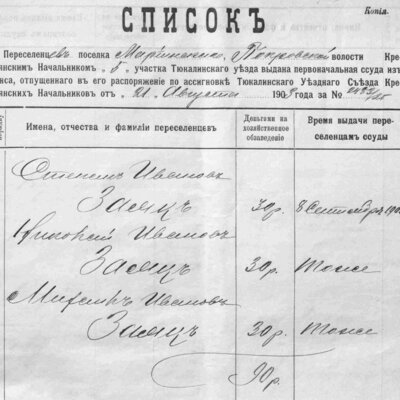 Копія.
СПИСОКЪ
Переселенцевъ поселка Покровской волости Кре
янскимъ Начальникомъ „б“ участка Тюкалинскаго уѣзда выдана первоначальная ссуда изъ
нса, отпущеннаго въ его распоряженіе по ассигновкѣ Тюкалинскаго Уѣзднаго Съѣзда Кре
янскихъ Начальниковъ отъ „21“ Августа 190 года за №
Имена, отчества и фамиліи переселенцевъ
Деньгами на хозяйственное обзаведеніе
Время выдачи пере-
селенцамъ ссуды
Степанъ Ивановъ
Заяцъ 30 р. 8 Сентября 190
Николай Ивановъ
Заяцъ 30 р. тоже
Ивановъ
Заяцъ 30 р. тоже
90 р.